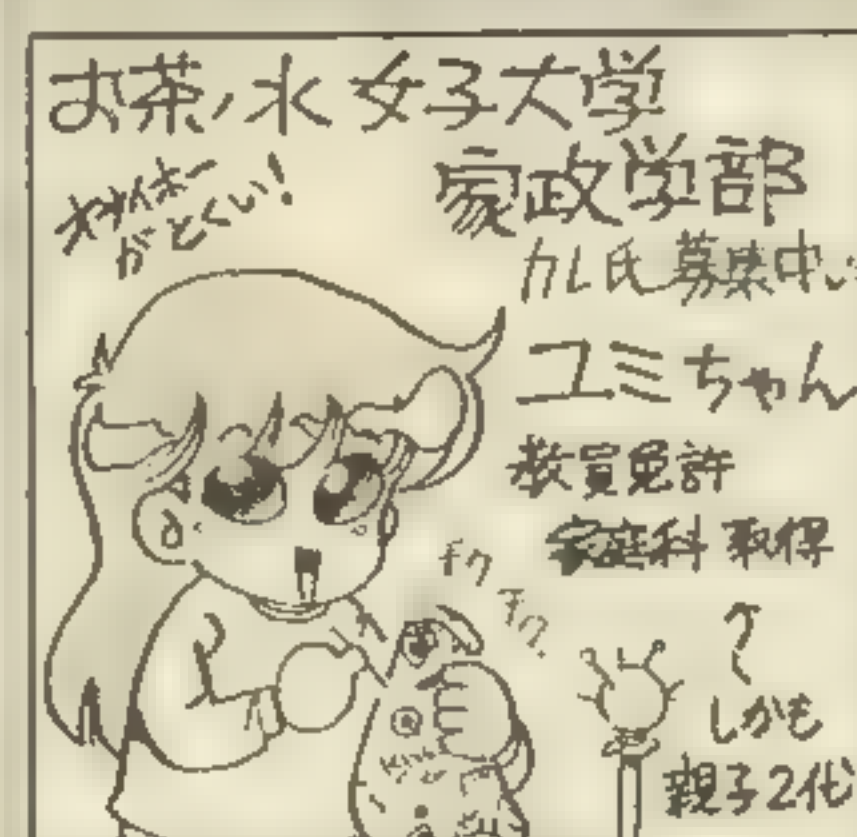 お茶ノ水女子大学
家政学部
がとくい!
カレ氏募集中
ユミちゃん
教員免許
家庭科取得
チク
チク
しかも
親子2代